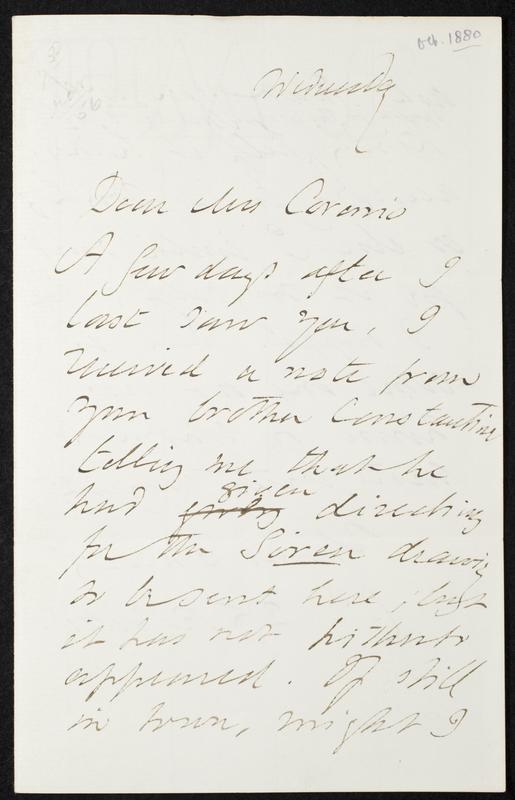 Feb. 1880
Wednesday
Dear Mrs Coronio
A few days after I
last saw you, I
received a note from
your brother Constantine
telling me that he
had given directions
for the Siren drawing
to be sent here, but
it has not hitherto
appeared. If still
in town, might I